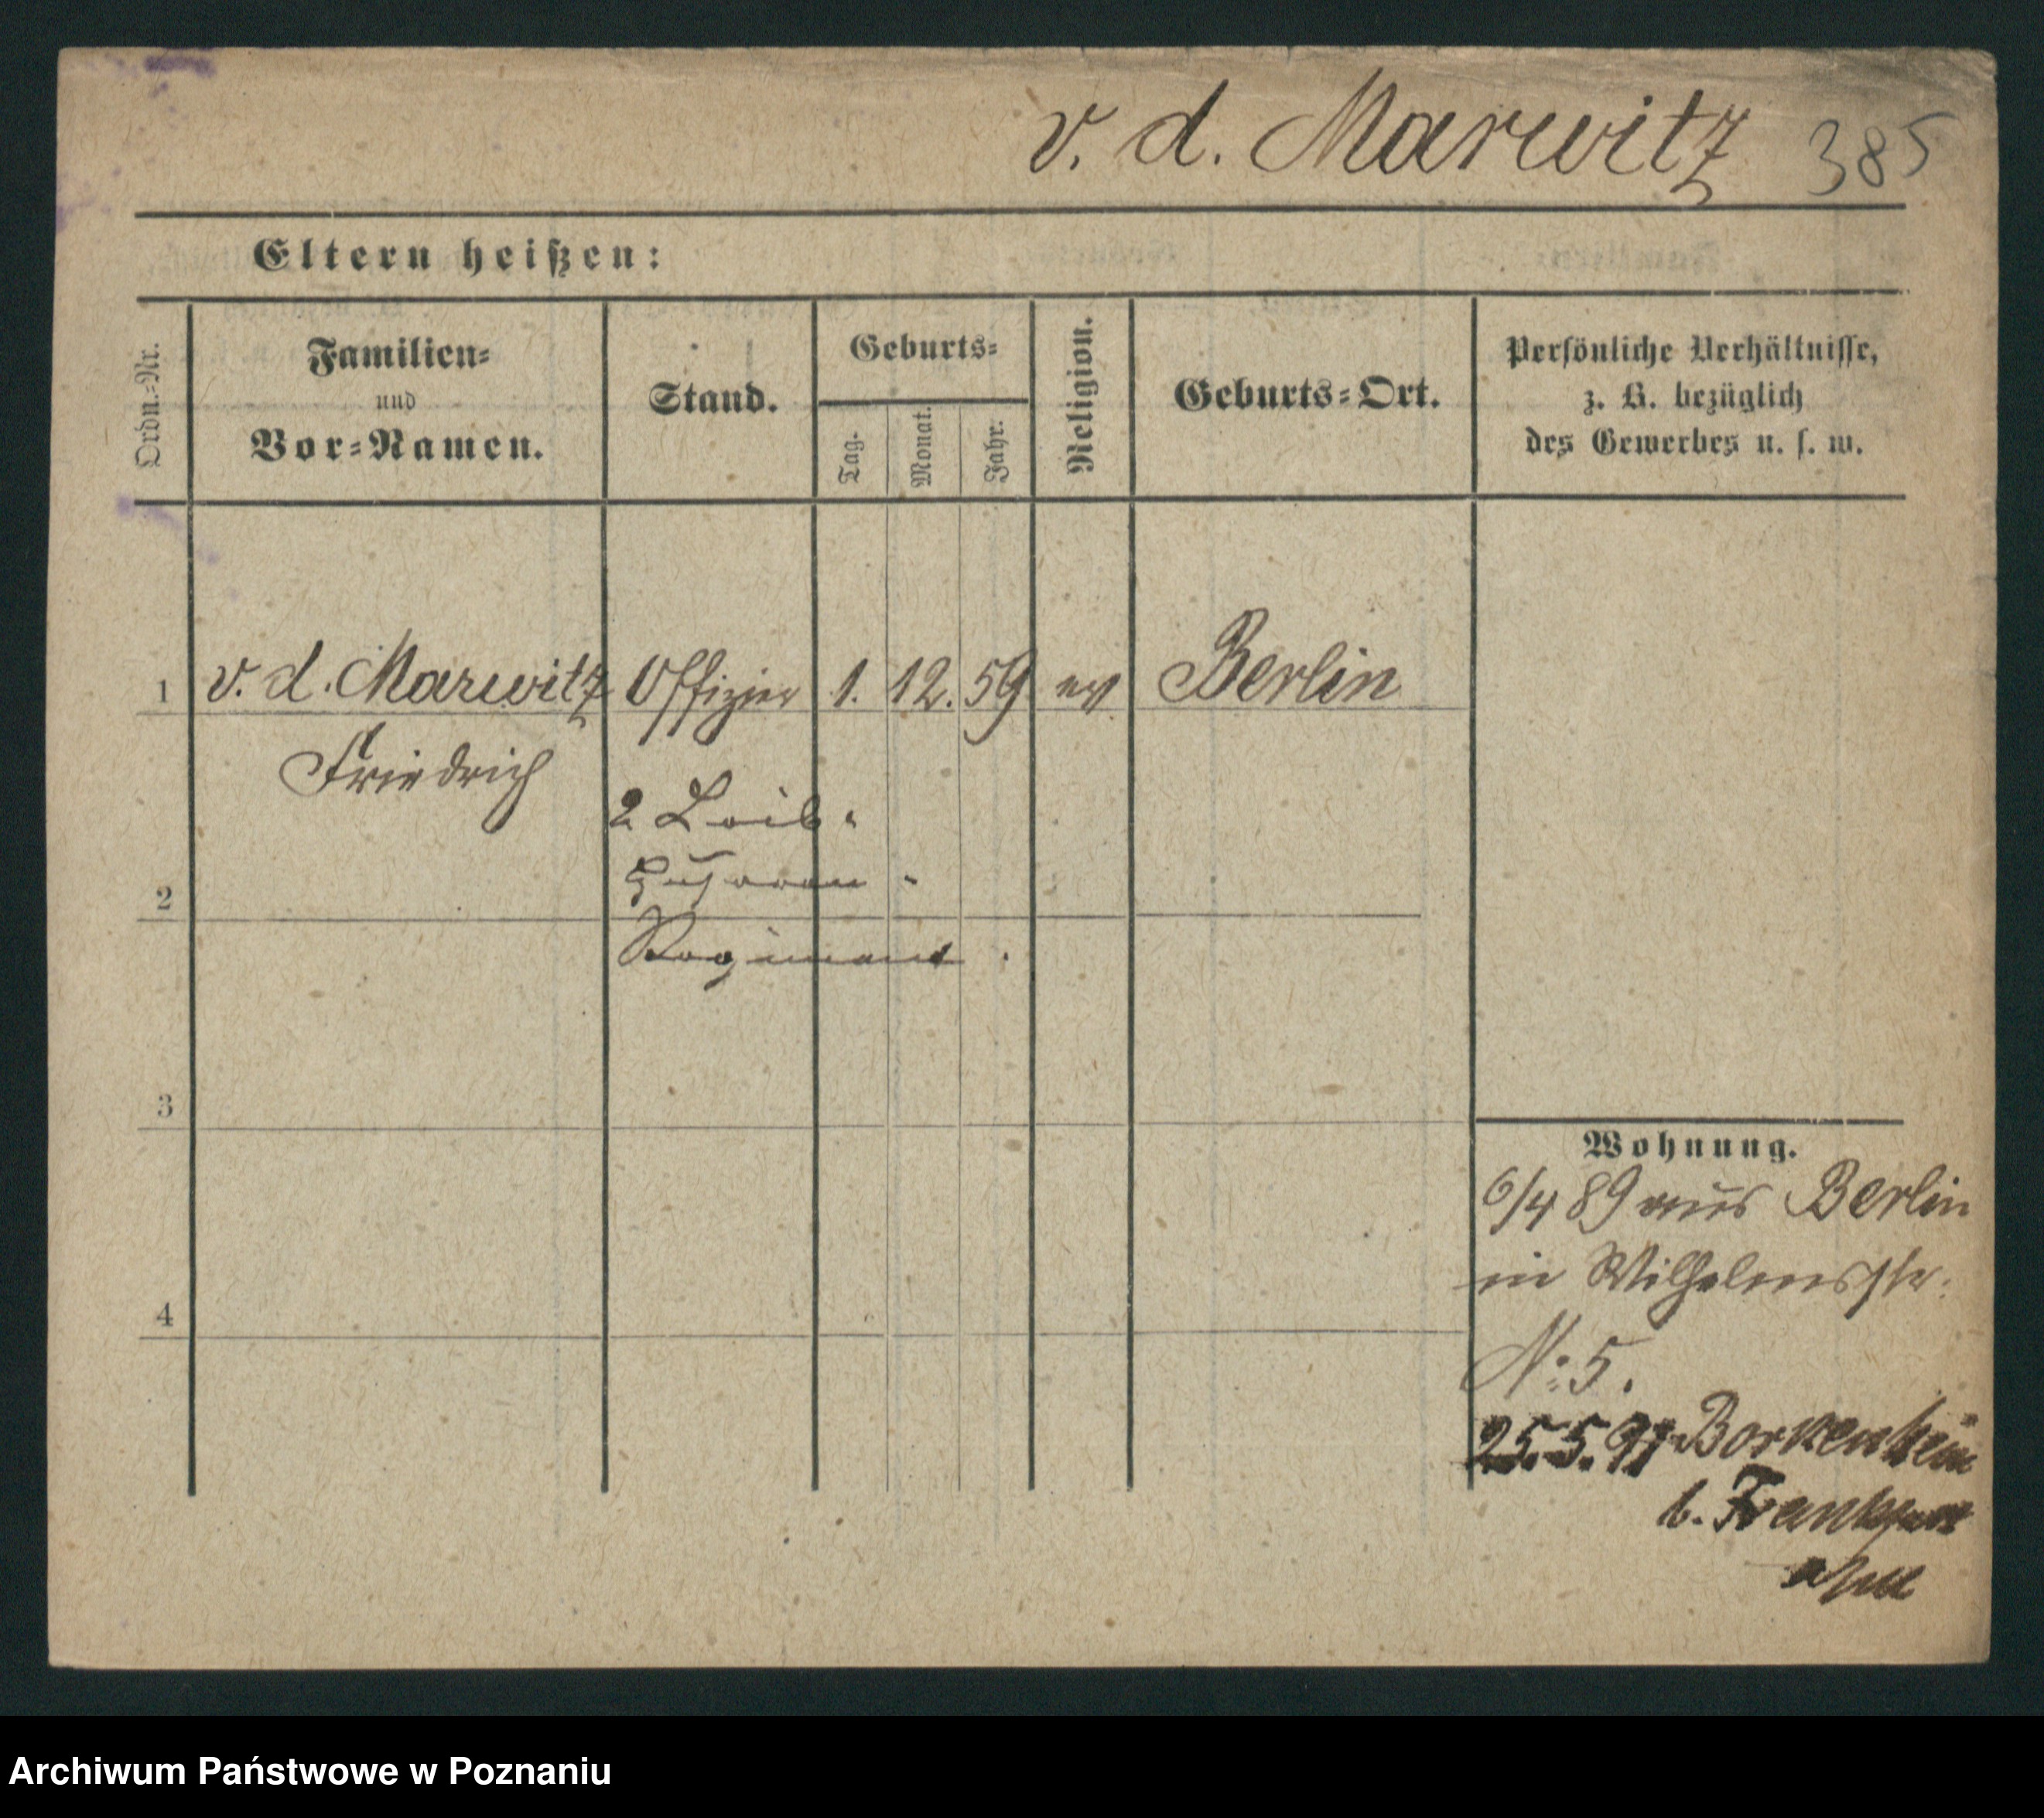 v. d. Marwitz 385
Eltern heißen:
Ordn.-Nr.
Familien-
und
Vor-Namen.
Stand.
Geburts-
Tag.
Monat.
Jahr.
Religion.
Geburts-Ort.
Persönliche Verhältnisse,
z. B. bezüglich
des Gewerbes u. s. w.
1 v. d. Marwitz Offizier 1. 12. 59 ev Berlin
Friedrich
2 Leib-
Husaren-
2
Regiment.
3
4
Wohnung.
6/4 89 aus Berlin
in Wilhelmsstr.
No 5.
25.5.91 Borkenheim
b. Frankfurt
Archiwum Państwowe w Poznaniu